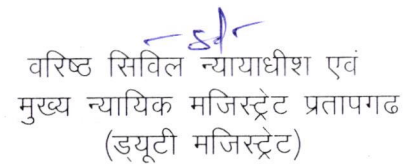 -sd-
वरिष्ठ सिविल न्यायाधीश एवं
मुख्य न्यायिक मजिस्ट्रेट प्रतापगढ
(ड्यूटी मजिस्ट्रेट)